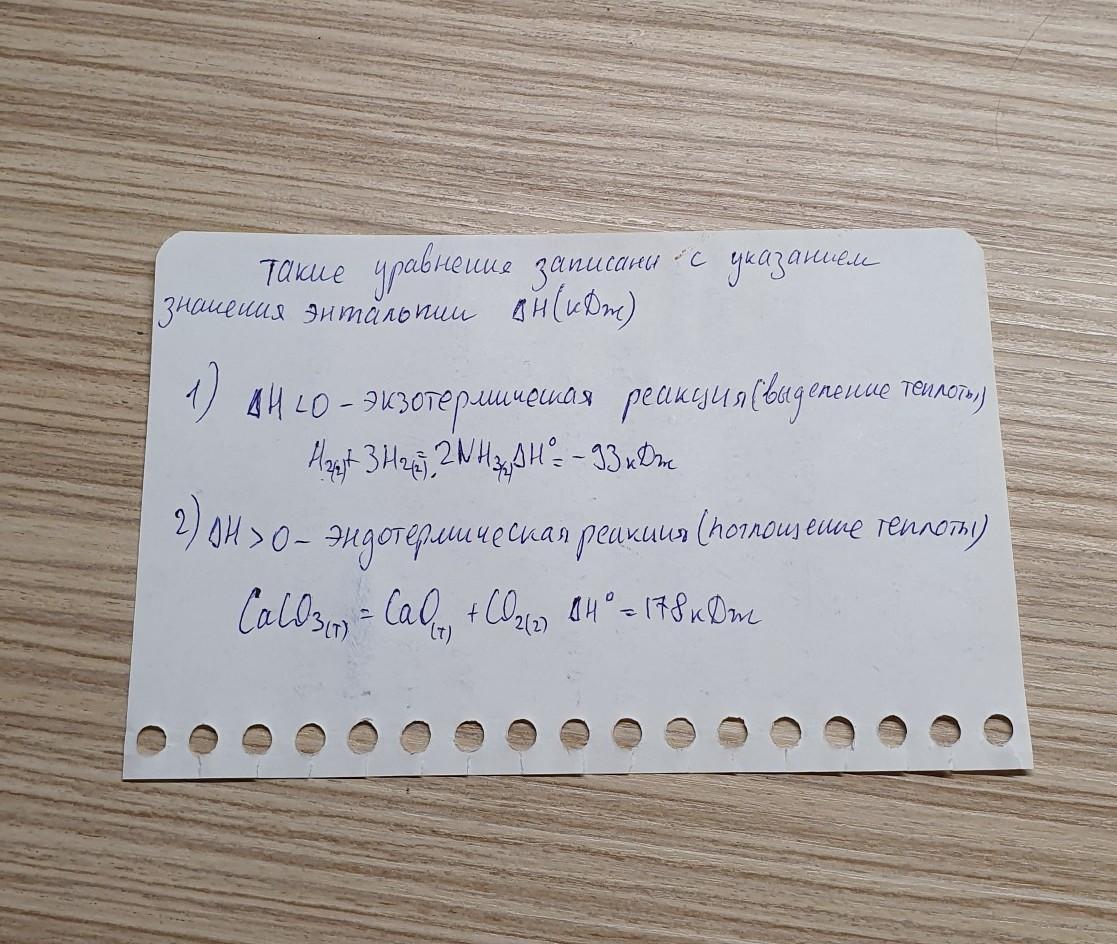 такие уравнения записани с указанием
значения энтальпии ΔH(кДж)
1) ΔH<0 – экзотермическая реакция (выделение теплоты)
H₂₍г₎+3H₂₍г₎=2NH₃₍г₎ ΔH°=-93кДж
2) ΔH>0 – эндотермическая реакция (поглощение теплоты)
CaCO₃₍т₎=CaO₍т₎+CO₂₍г₎ ΔH°=178кДж